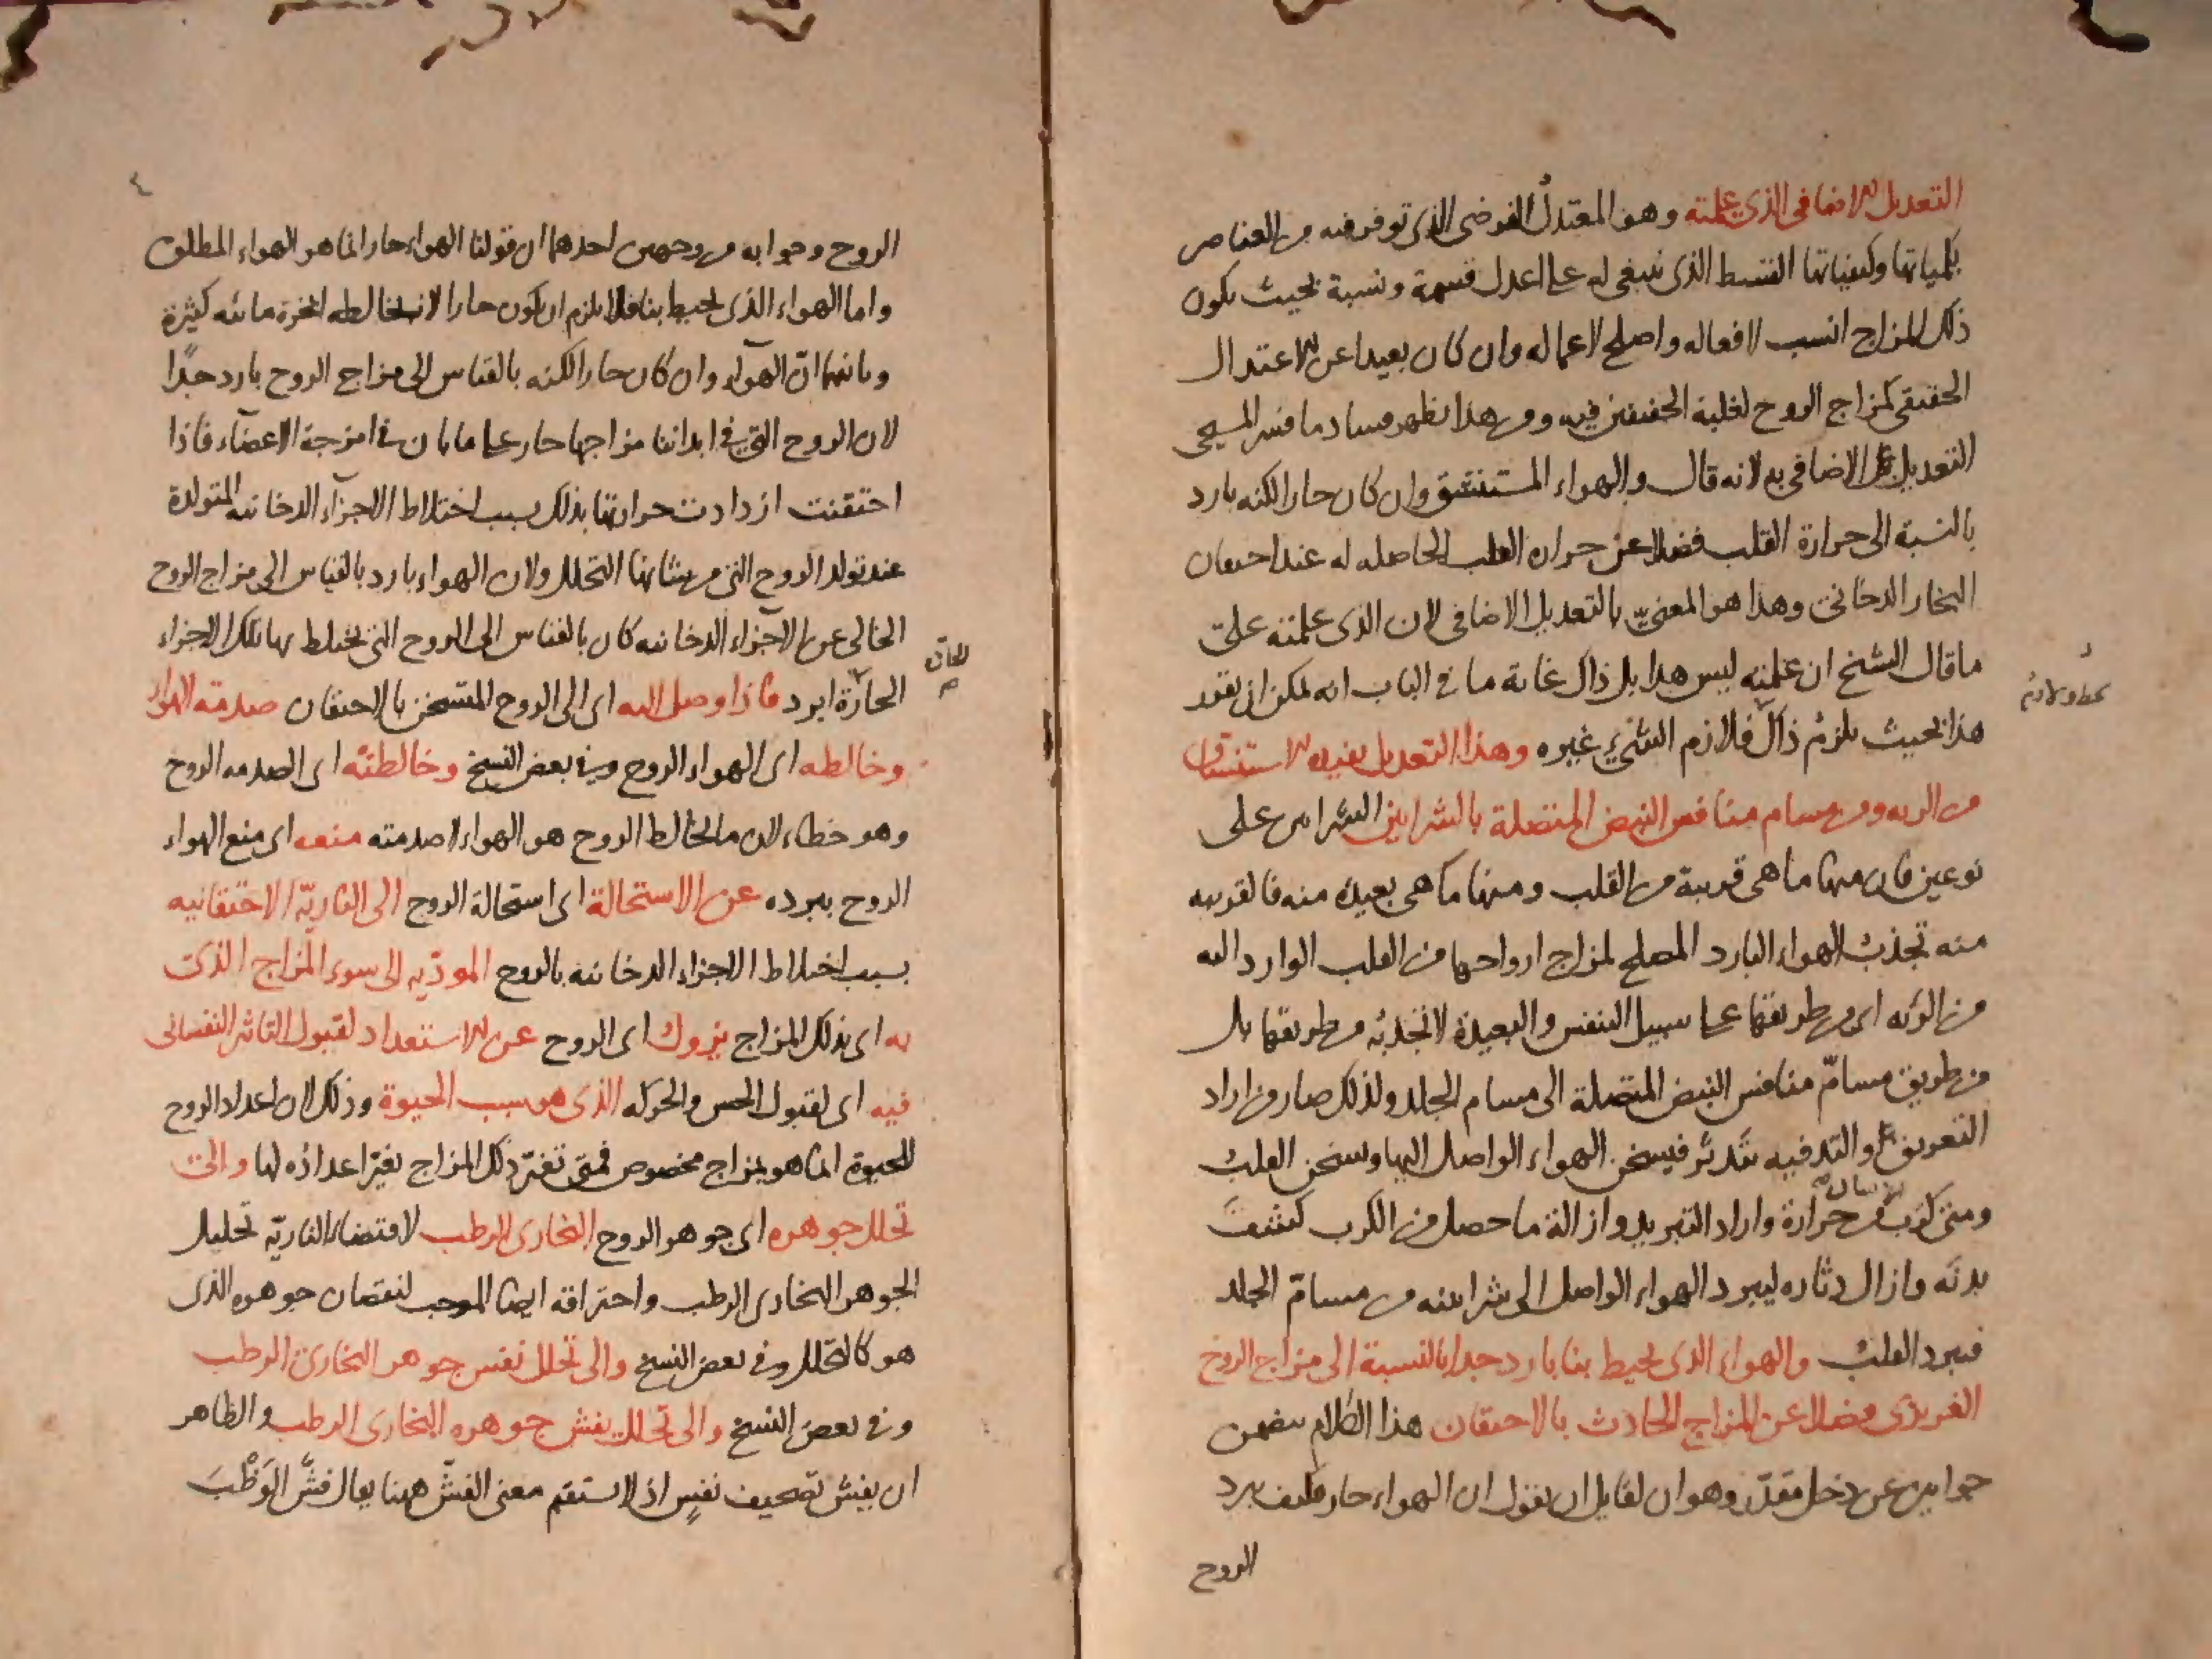 التعديل الاضافى الذى علمته وهو المعتدل الفرضى الذى توفر فيه من العناصر
بكمياتها وكيفياتها القسط الذى ينبغى له على اعدل قسمة ونسبة بحيث يكون
ذلك المزاج انسب لافعاله واصلح لاعماله وان كان بعيدا عن الاعتدال
الحقيقى كمزاج الروح لغلبة الخفيفين فيه ومن هذا يظهر فساد ما فسر المسيحى
التعديل الاضافى به لانه قال والهواء المستنشق وان كان حارا لكنه بارد
بالنسبة الى حرارة القلب فضلا عن حراره القلب الحاصله له عند احتقان
البخار الدخانى وهذا هو المعنىّ بالتعديل الاضافى لان الذى علمته على
ما قال الشيخ ان علمته ليس هذا بل ذاك غاية ما فى الباب انه يمكن ان يقود
هذا بحيث يلزم ذاك فلازم الشىء غيره وهذا التعديل يفيده الاستنشاق
من الريه ومن مسام منافس النبض المتصلة بالشرايين الشرايين على
نوعين فان منها ما هى قريبة من القلب ومنها ما هى بعيده منه فالقريبه
منه تجذب الهواء البارد المصلح لمزاج ارواحها من القلب الوارد اليه
من الريه اى من طريقها على سبيل التنفس والبعيدة لا تجذبه من طريقها بل
من طريق مسامّ منافس النبض المتصلة الى مسام الجلد ولذلك صار من اراد
التعريق والتدفيه تدثر فيسخن الهواء الواصل اليها ويسخن القلب
ومتى كرب من حرارة واراد التبريد وازالة ما حصل من الكرب كشف
الانسان
بدنه وازال دثاره ليبرد الهواء الواصل الى شرايينه من مسامّ الجلد
فيبرد القلب والهواء الذى يحيط بنا بارد جدا بالنسبة الى مزاج الروح
الغريزى فضلا عن المزاج الحادث بالاحتقان هذا الكلام يتضمن
جوابين عن دخل مقدّر وهو ان لقايل ان يقول ان الهواء حار فكيف يبرد
الروح
٤
الروح وجوابه من وجهين احدهما ان قولنا الهواء حار انما هو الهواء المطلق
واما الهواء الذى يحيط بنا فلا يلزم ان يكون حارا لانه يخالطه ابخرة مائيه كثيرة
وثانيهما انّ الهواء وان كان حارا لكنه بالقياس الى مزاج الروح بارد جدًا
لان الروح التى فى ابداننا مزاجها حار على ما بان فى امزجة الاعضاء فاذا
احتقنت ازدادت حرارتها بذلك بسبب اختلاط الاجزاء الدخانيه المتولدة
عند تولد الروح التى من شانها التحلل ولان الهواء بارد بالقياس الى مزاج الروح
الخالى عن الاجزاء الدخانيه كان بالقياس الى الروح التى يختلط بها تلك الاجزاء
الحارّة ابرد فاذا وصل اليه اى الى الروح المتسخن بالاحتقان صدمته الهواء
وخالطه اى الهواء الروح وفى بعض النسخ وخالطته اى الصدمه الروح
وهو خطاء لان ما يخالط الروح هو الهواء لا صدمته منعه اى منع الهواء
الروح ببرده عن الاستحالة اى استحالة الروح الى الناريّة الاحتقانيه
بسبب اختلاط الاجزاء الدخانيه بالروح المودّيه الى سوء المزاج الذى
به اى بذلك المزاج يزول اى الروح عن الاستعداد لقبول التاثر النفسانى
فيه اى لقبول الحس والحركه الذى هو سبب الحيوة وذلك لان اعداد الروح
للحيوة انما هو بمزاج مخصوص فمتى تغيّر ذلك المزاج تغيّر اعداده لها والى
تحلل جوهره اى جوهر الروح البخارى الرطب لاقتضاء الناريّه تحليل
الجوهر البخارى الرطب واحتراقه ايضا الموجب لنقصان جوهره الذى
هو كالتحلل وفى بعض النسخ والى تحلل نفس جوهر البخارى الرطب
وفى بعض النسخ والى تحلل يفش جوهره البخارى الرطب والظاهر
ان يفش تصحيف نفس اذ لا يستقيم معنى الفشّ هينا يقال فشّ الوَطْبَ